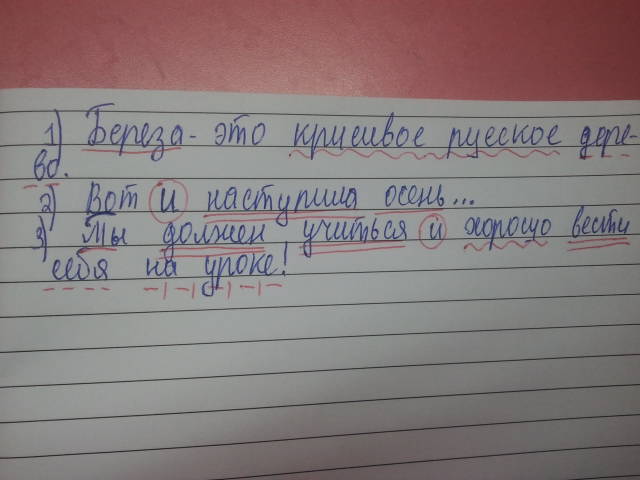 1) Береза - это красивое русское дере-
во.
2) Вот и наступила осень...
3) Мы должен учиться и хорошо вести
себя на уроке!